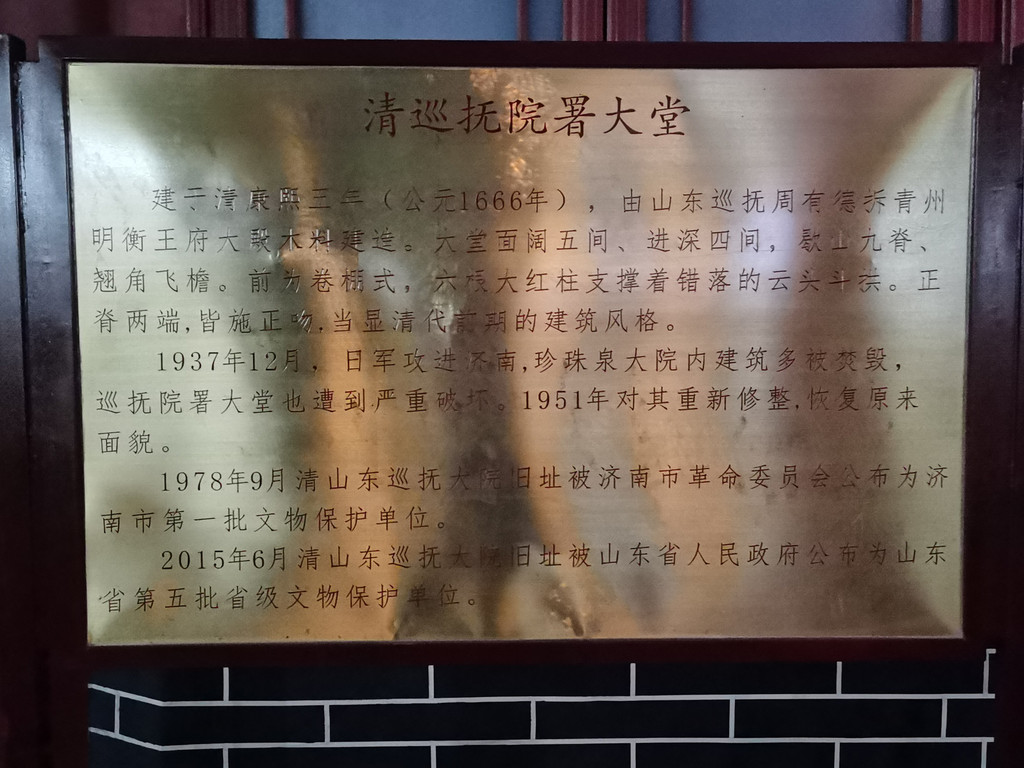 清巡抚院署大堂
建于清康熙三年（公元1666年），由山东巡抚周有德拆青州
明衡王府大殿木料建造。大堂面阔五间、进深四间，歇山九脊、
翘角飞檐。前为卷棚式，六根大红柱支撑着错落的云头斗拱。正
脊两端,皆施正吻,当显清代前期的建筑风格。
1937年12月，日军攻进济南,珍珠泉大院内建筑多被焚毁，
巡抚院署大堂也遭到严重破坏。1951年对其重新修整,恢复原来
面貌。
1978年9月清山东巡抚大院旧址被济南市革命委员会公布为济
南市第一批文物保护单位。
2015年6月清山东巡抚大院旧址被山东省人民政府公布为山东
省第五批省级文物保护单位。